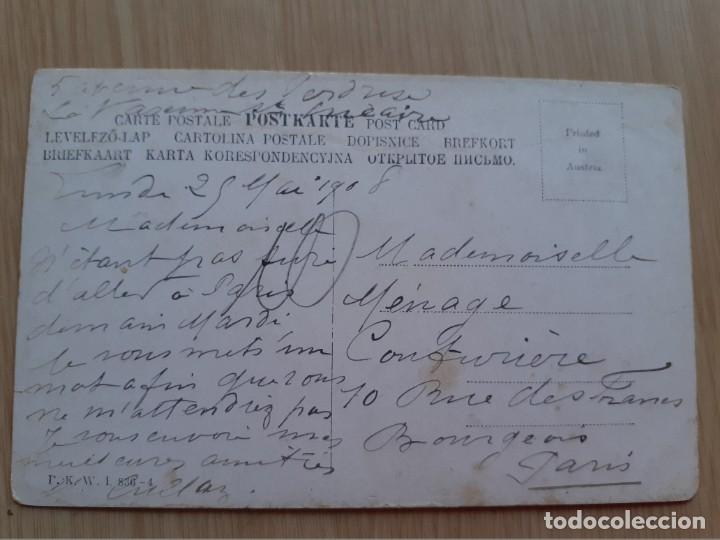 5 avenue des
La Varenne St Hilaire
CARTE POSTALE POSTKARTE POST CARD
LEVELEZŐ-LAP CARTOLINA POSTALE DOPISNICE BREFKORT
BRIEFKAART KARTA KORESPONDENCYJNA ОТКРЫТОЕ ПИСЬМО.
Printed
in
Austria
Lundi 25 Mai 1908
Mademoiselle
N'étant pas sure
d'aller à Paris
demain Mardi,
Je vous mets un
mot afin que vous
ne m'attendiez pas
Je vous envoie mes
meilleures amitiés
10
Mademoiselle
Ménage
Couturière
10 Rue des Francs
Bourgeois
Paris
P. K. W. I. 836-4
todocoleccion